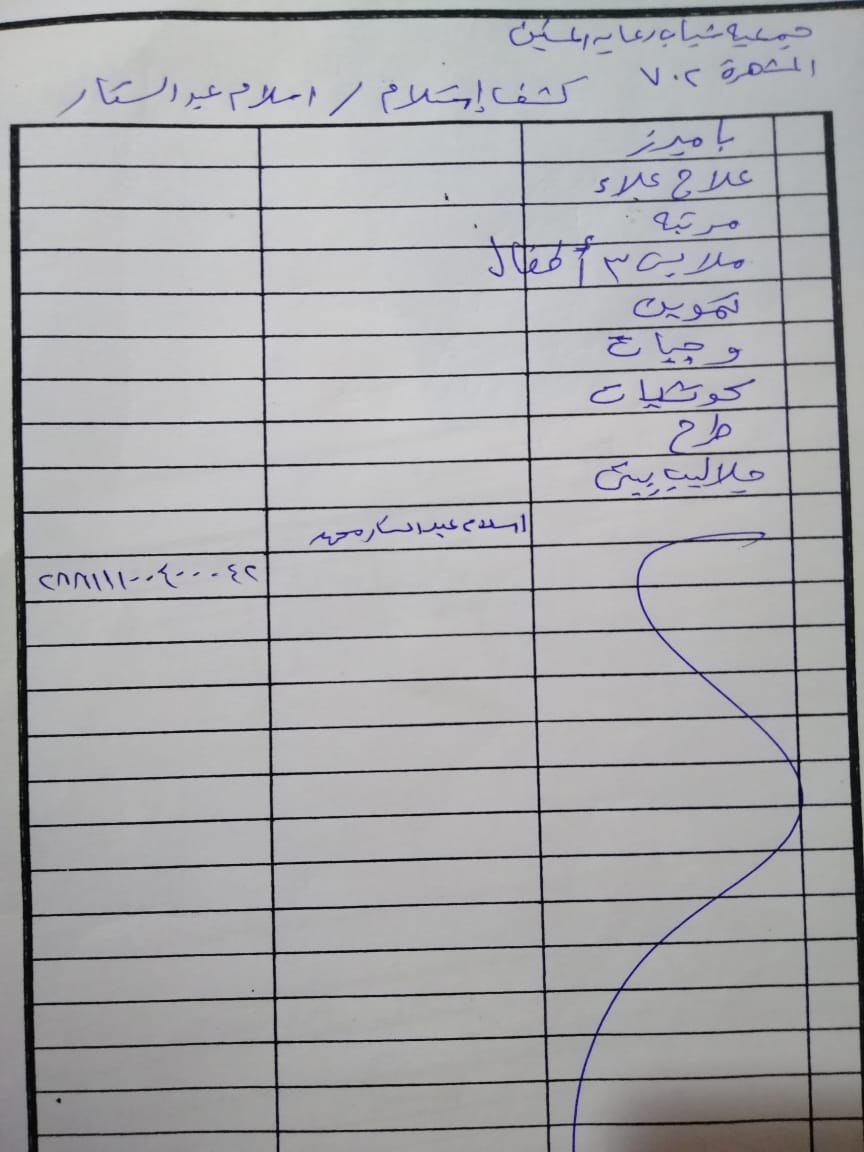 جمعية شباب رعاية المسنين
المشهرة ٧٠٢
كشف إستلام / اسلام عبد الستار
بامبرز
علاج علاء
مرتبه
ملابس ٣ أطفال
تموين
وجبات
كوتشيات
طرح
جلاليب بيتى
اسلام عبد الستار محمد